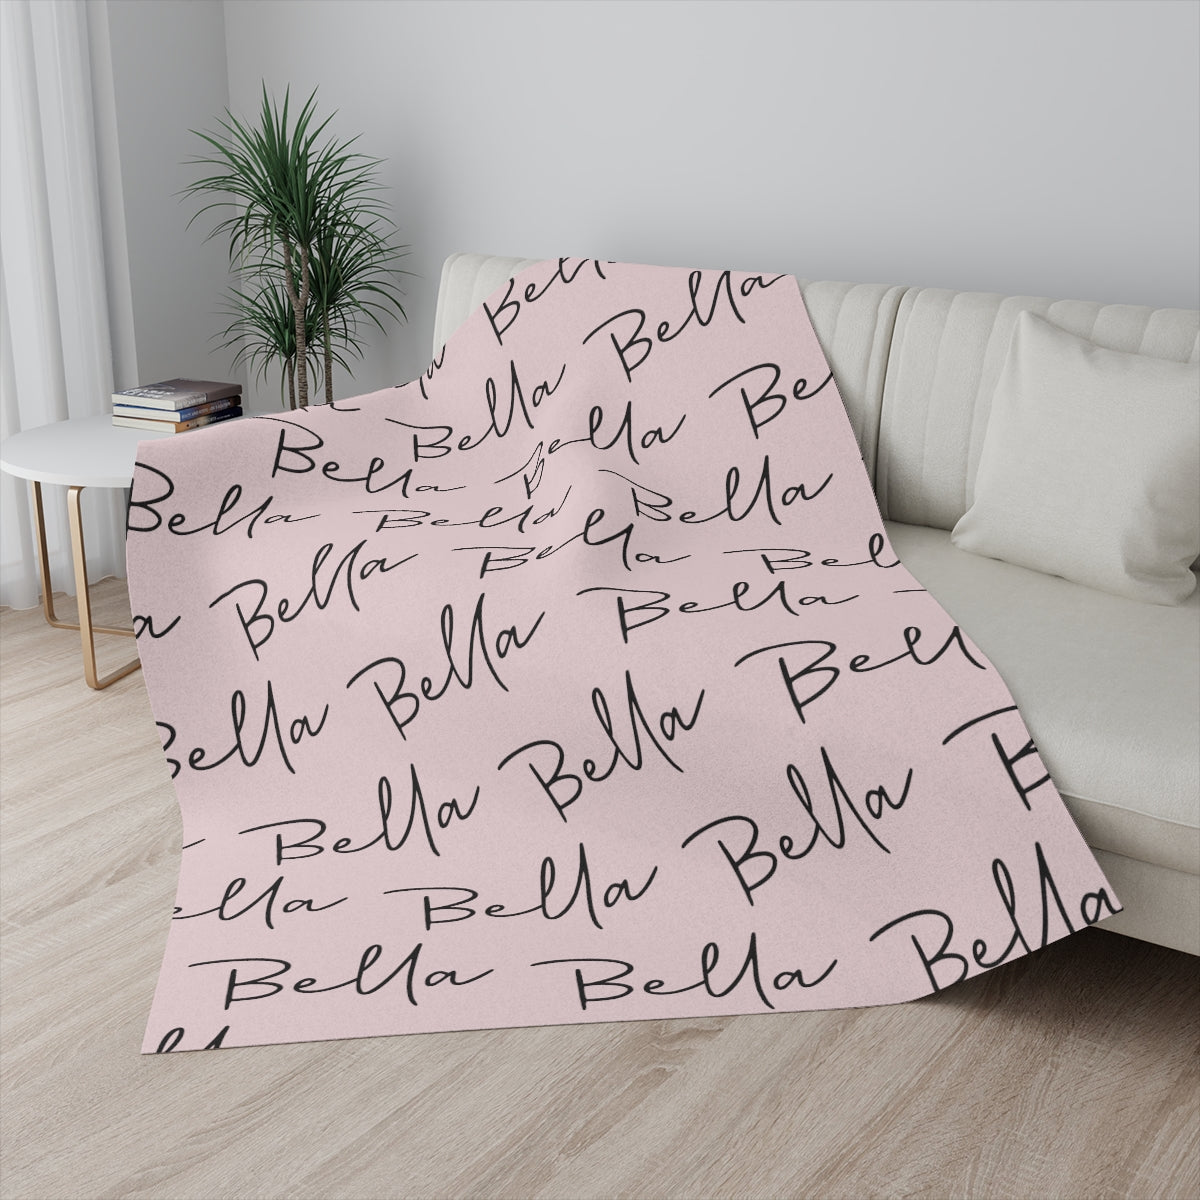 Bella
Bella
Be
Bella
Bella
Bella
Bella
Bella
Bella
Bella
Bella
Bella
Bella
Bell
a
Bella
Bella
Bella
Bella
Bell
Bella
Bella
B
Bella
Bella
ella
Bella
Bella
Bella
Bella
Bella